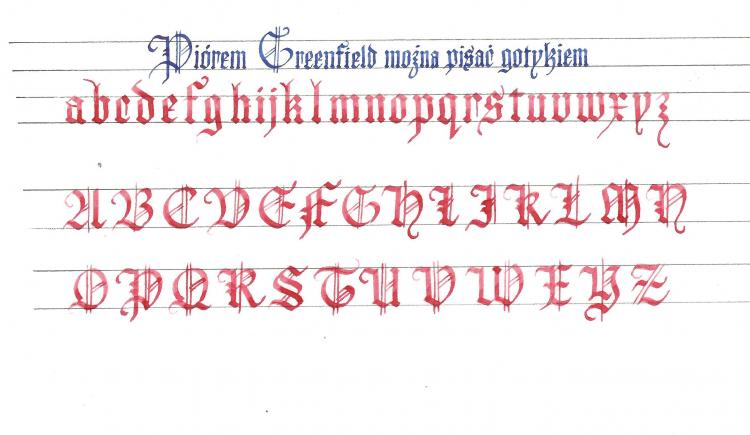 Piórem Greenfield można pisać gotykiem
abcdefghijklmnopqrstuvwxyz
ABCDEFGHIJKLMN
OPQRSTUVWXYZ